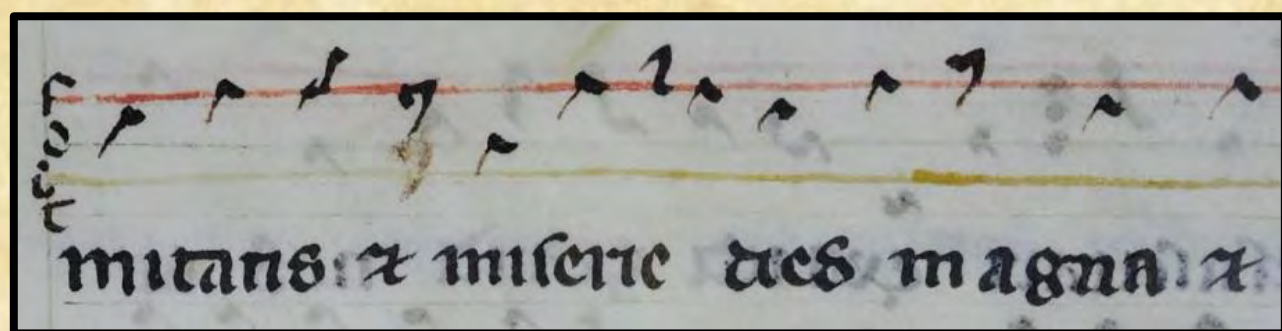 mitatis: ⁊ miſerie dies magna: ⁊